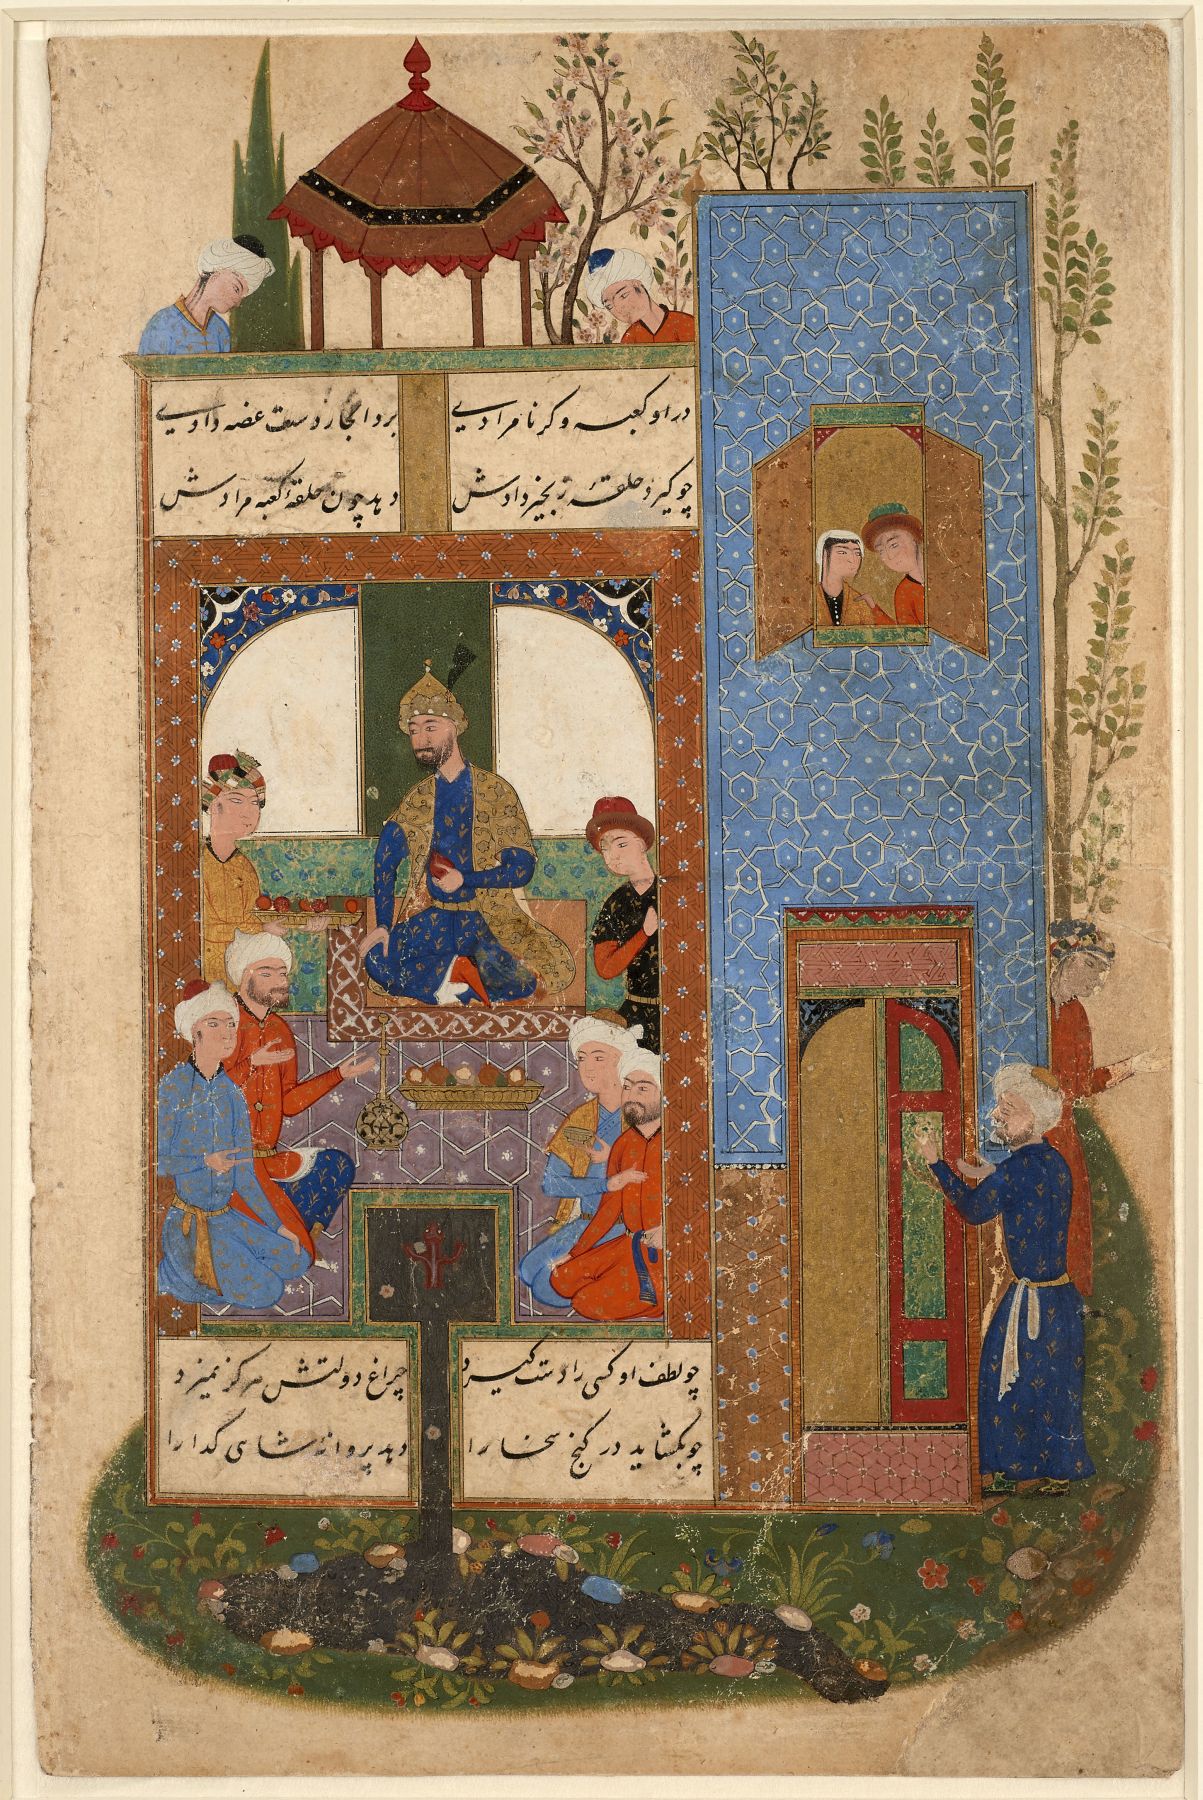 در او کعبه وگر نامرادی برد انجا ز دست غصه دادی
چو گیرد حلقهٔ زنجیر دادش دهد چون حلقهٔ کعبه مرادش
چو لطف او کسی را دست گیرد چراغ دولتش هرگز نمیرد
چو بگشاید در گنج سخا را دهد پروانهٔ شاهی گدا را